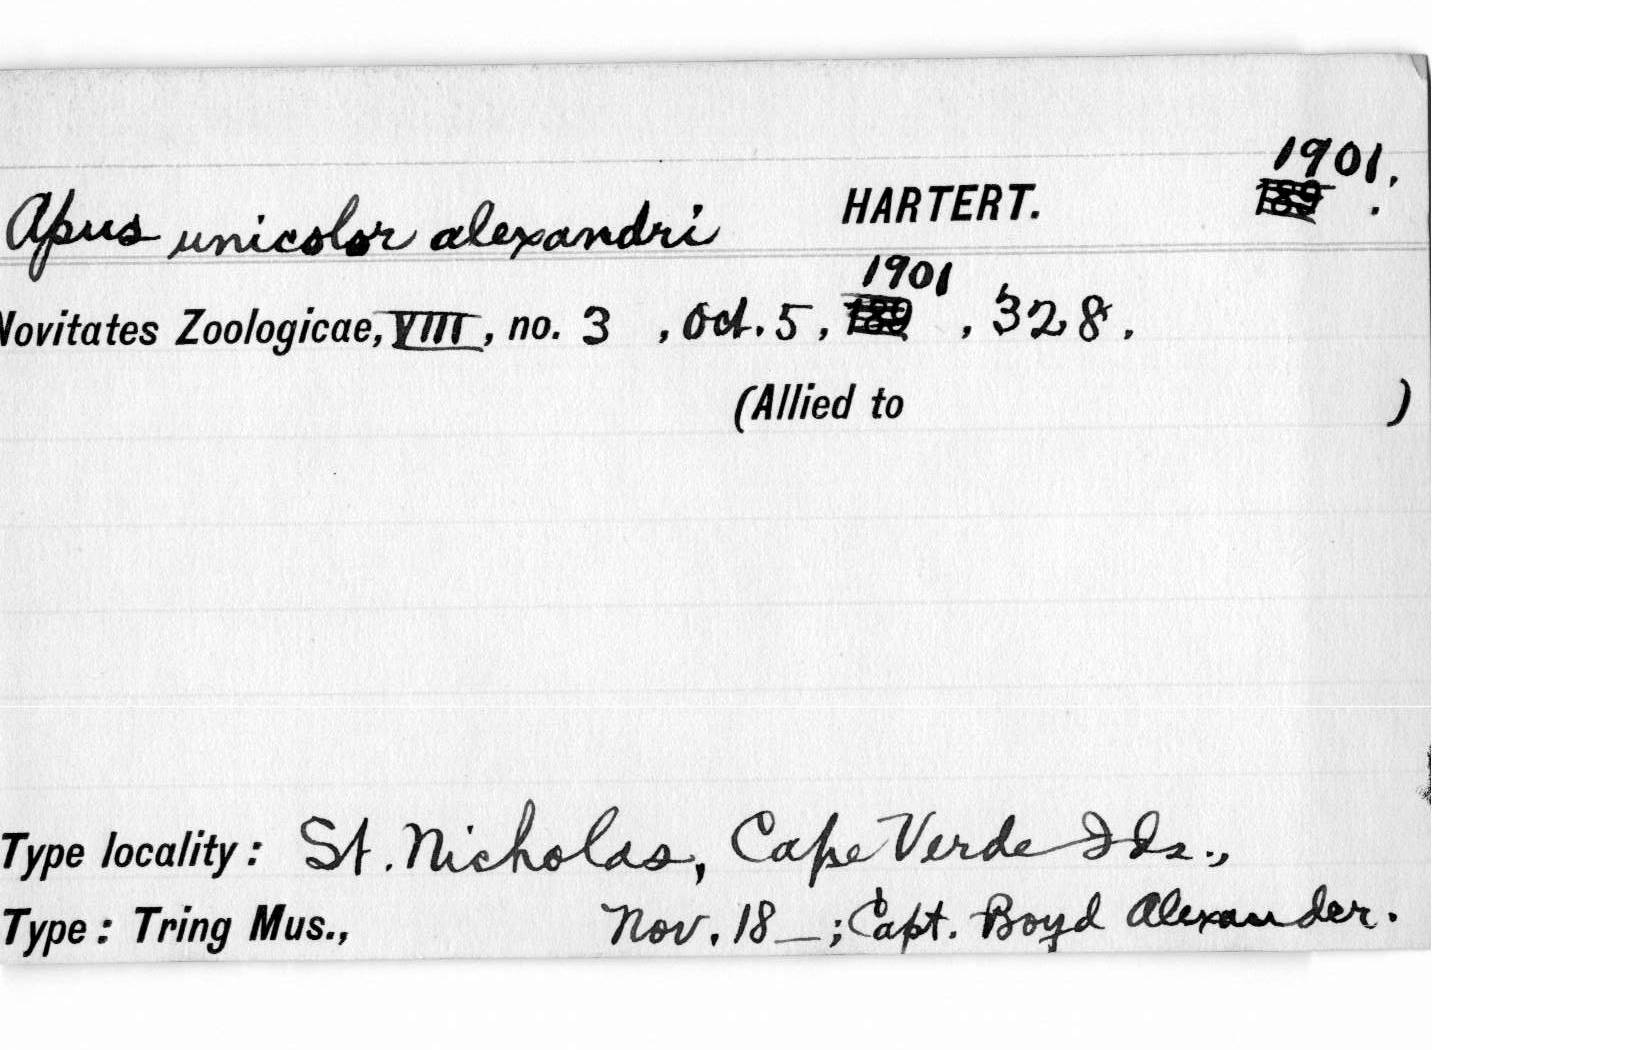 1901.
Apus unicolor alexandri HARTERT. 189 .
1901
Novitates Zoologicae, VIII, no. 3 , Oct. 5, 189 , 328.
(Allied to )
Type locality: St. Nicholas, Cape Verde Ids.,
Type: Tring Mus., Nov. 18_; Capt. Boyd Alexander.